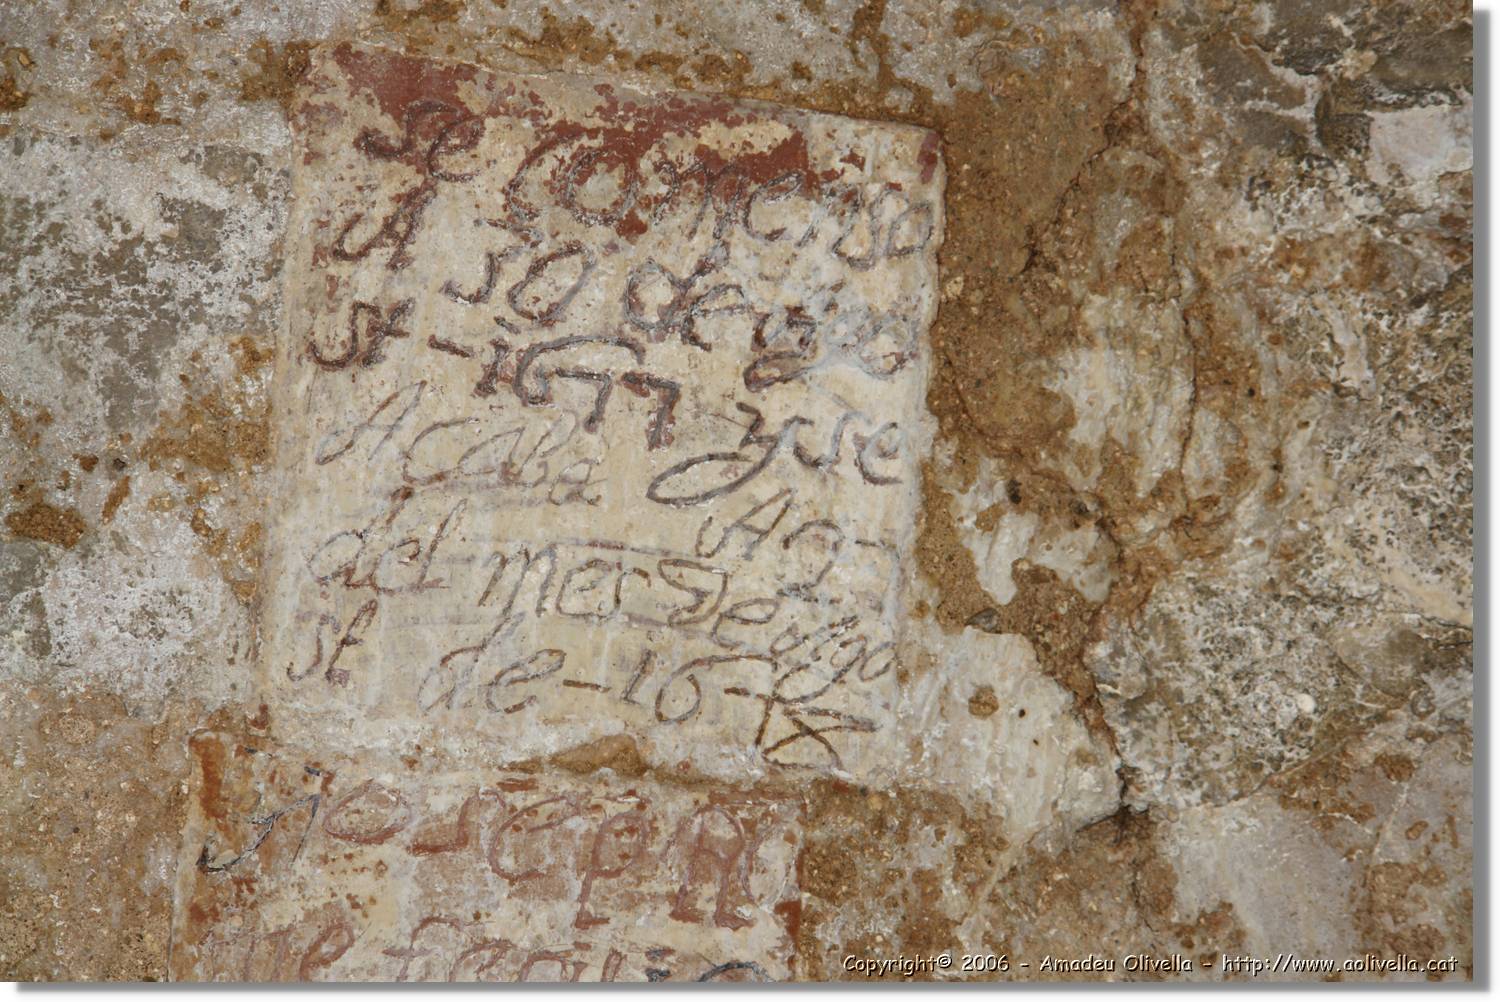 Se Comenso
A 30 de Ago
st - 1677 y se
Acaba A 27
del mes de Ago
st de - 1678
Joseph
me fecit
Copyright© 2006 - Amadeu Olivella - http://www.aolivella.cat